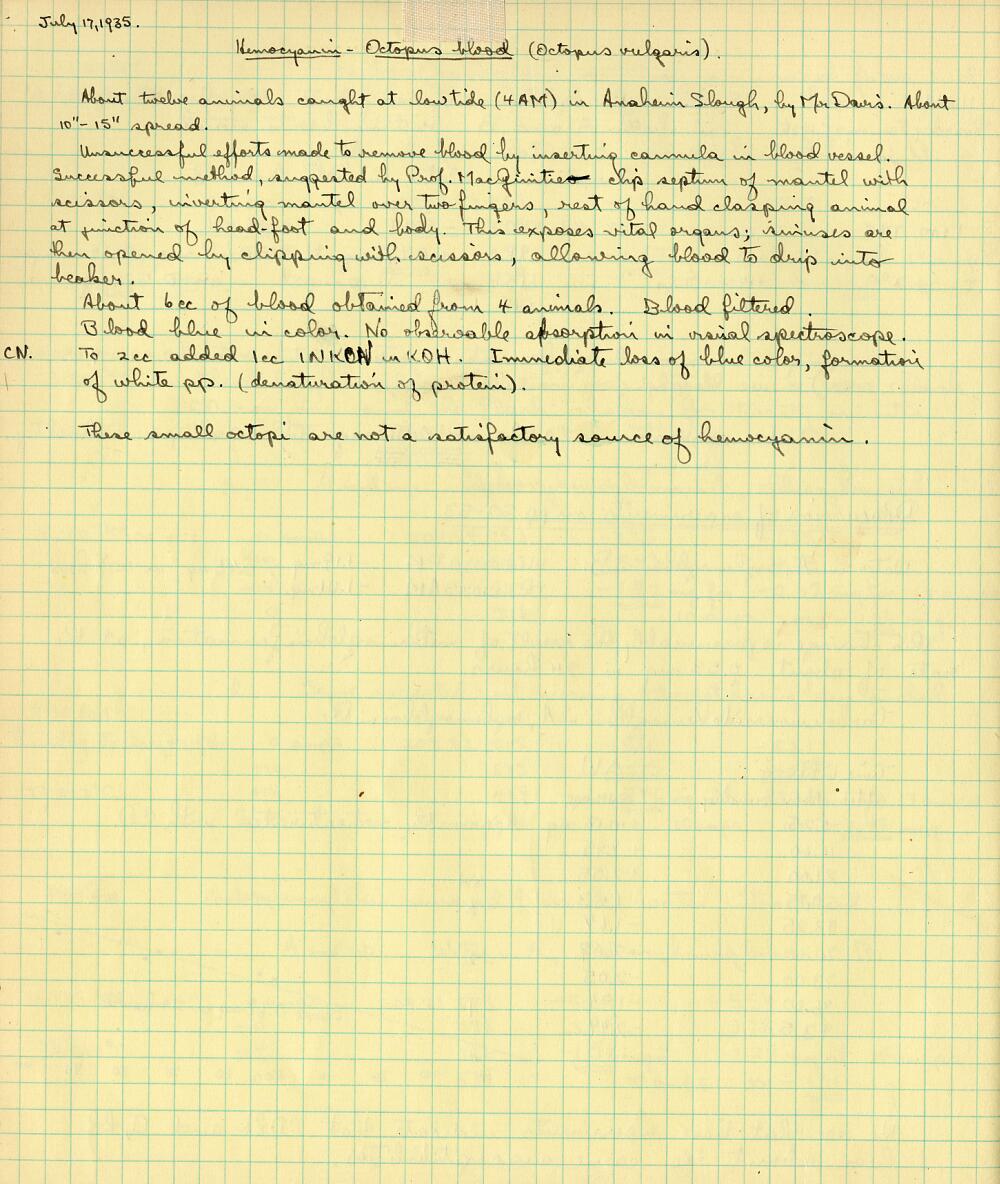 July 17, 1935.
Hemocyanin - Octopus blood (Octopus vulgaris).
About twelve animals caught at low tide (4 AM) in Anaheim Slough, by Mr Davis. About
10"-15" spread.
Unsuccessful efforts made to remove blood by inserting cannula in blood vessel.
Successful method, suggested by Prof. MacGinitie clip septum of mantel with
scissors, inverting mantel over two fingers, rest of hand clasping animal
at junction of head-foot and body. This exposes vital organs; sinuses are
then opened by clipping with scissors, allowing blood to drip into
beaker.
About 6cc of blood obtained from 4 animals. Blood filtered.
Blood blue in color. No observable absorption in visual spectroscope.
CN. To 2cc added 1cc 1N KCN in KOH. Immediate loss of blue color, formation
of white pp. (denaturation of protein).
These small octopi are not a satisfactory source of hemocyanin.